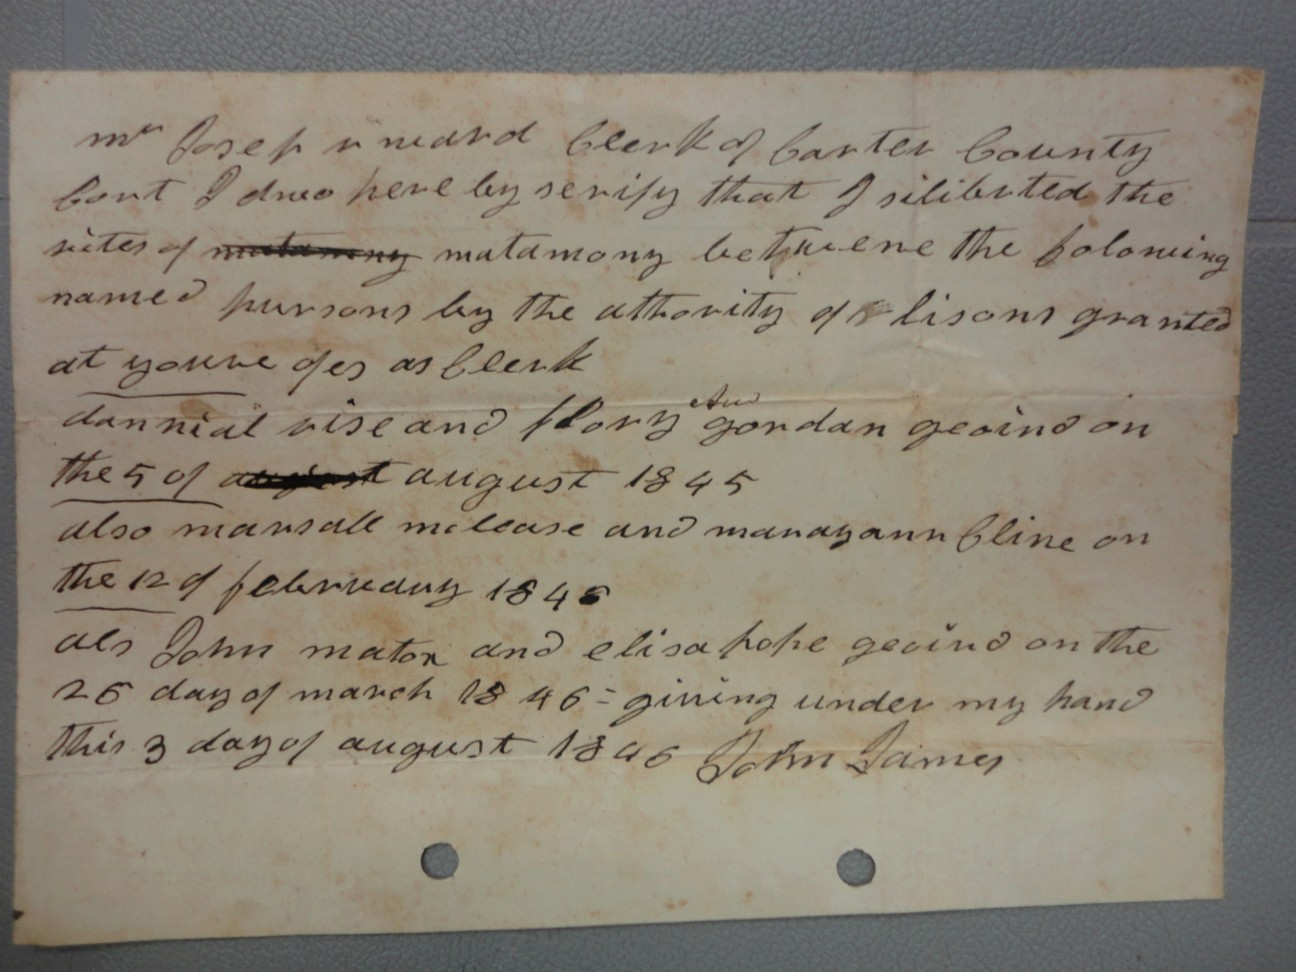 mr Josep r ward Clerk of Carter County
Cort I dwo here by serify that I siliberted the
rites of matamony matamony betwene the folowing
named pursons by the athority of lisons granted
at youre ofes as Clerk
dannial rise and flory Ann gordan geoind on
the 5 of august august 1845
also marsall mclease and marayann Cline on
the 12 of februuary 1846
als John mator and elisa pope geoind on the
26 day of march 1846 = giving under my hand
this 3 day of august 1846 John James